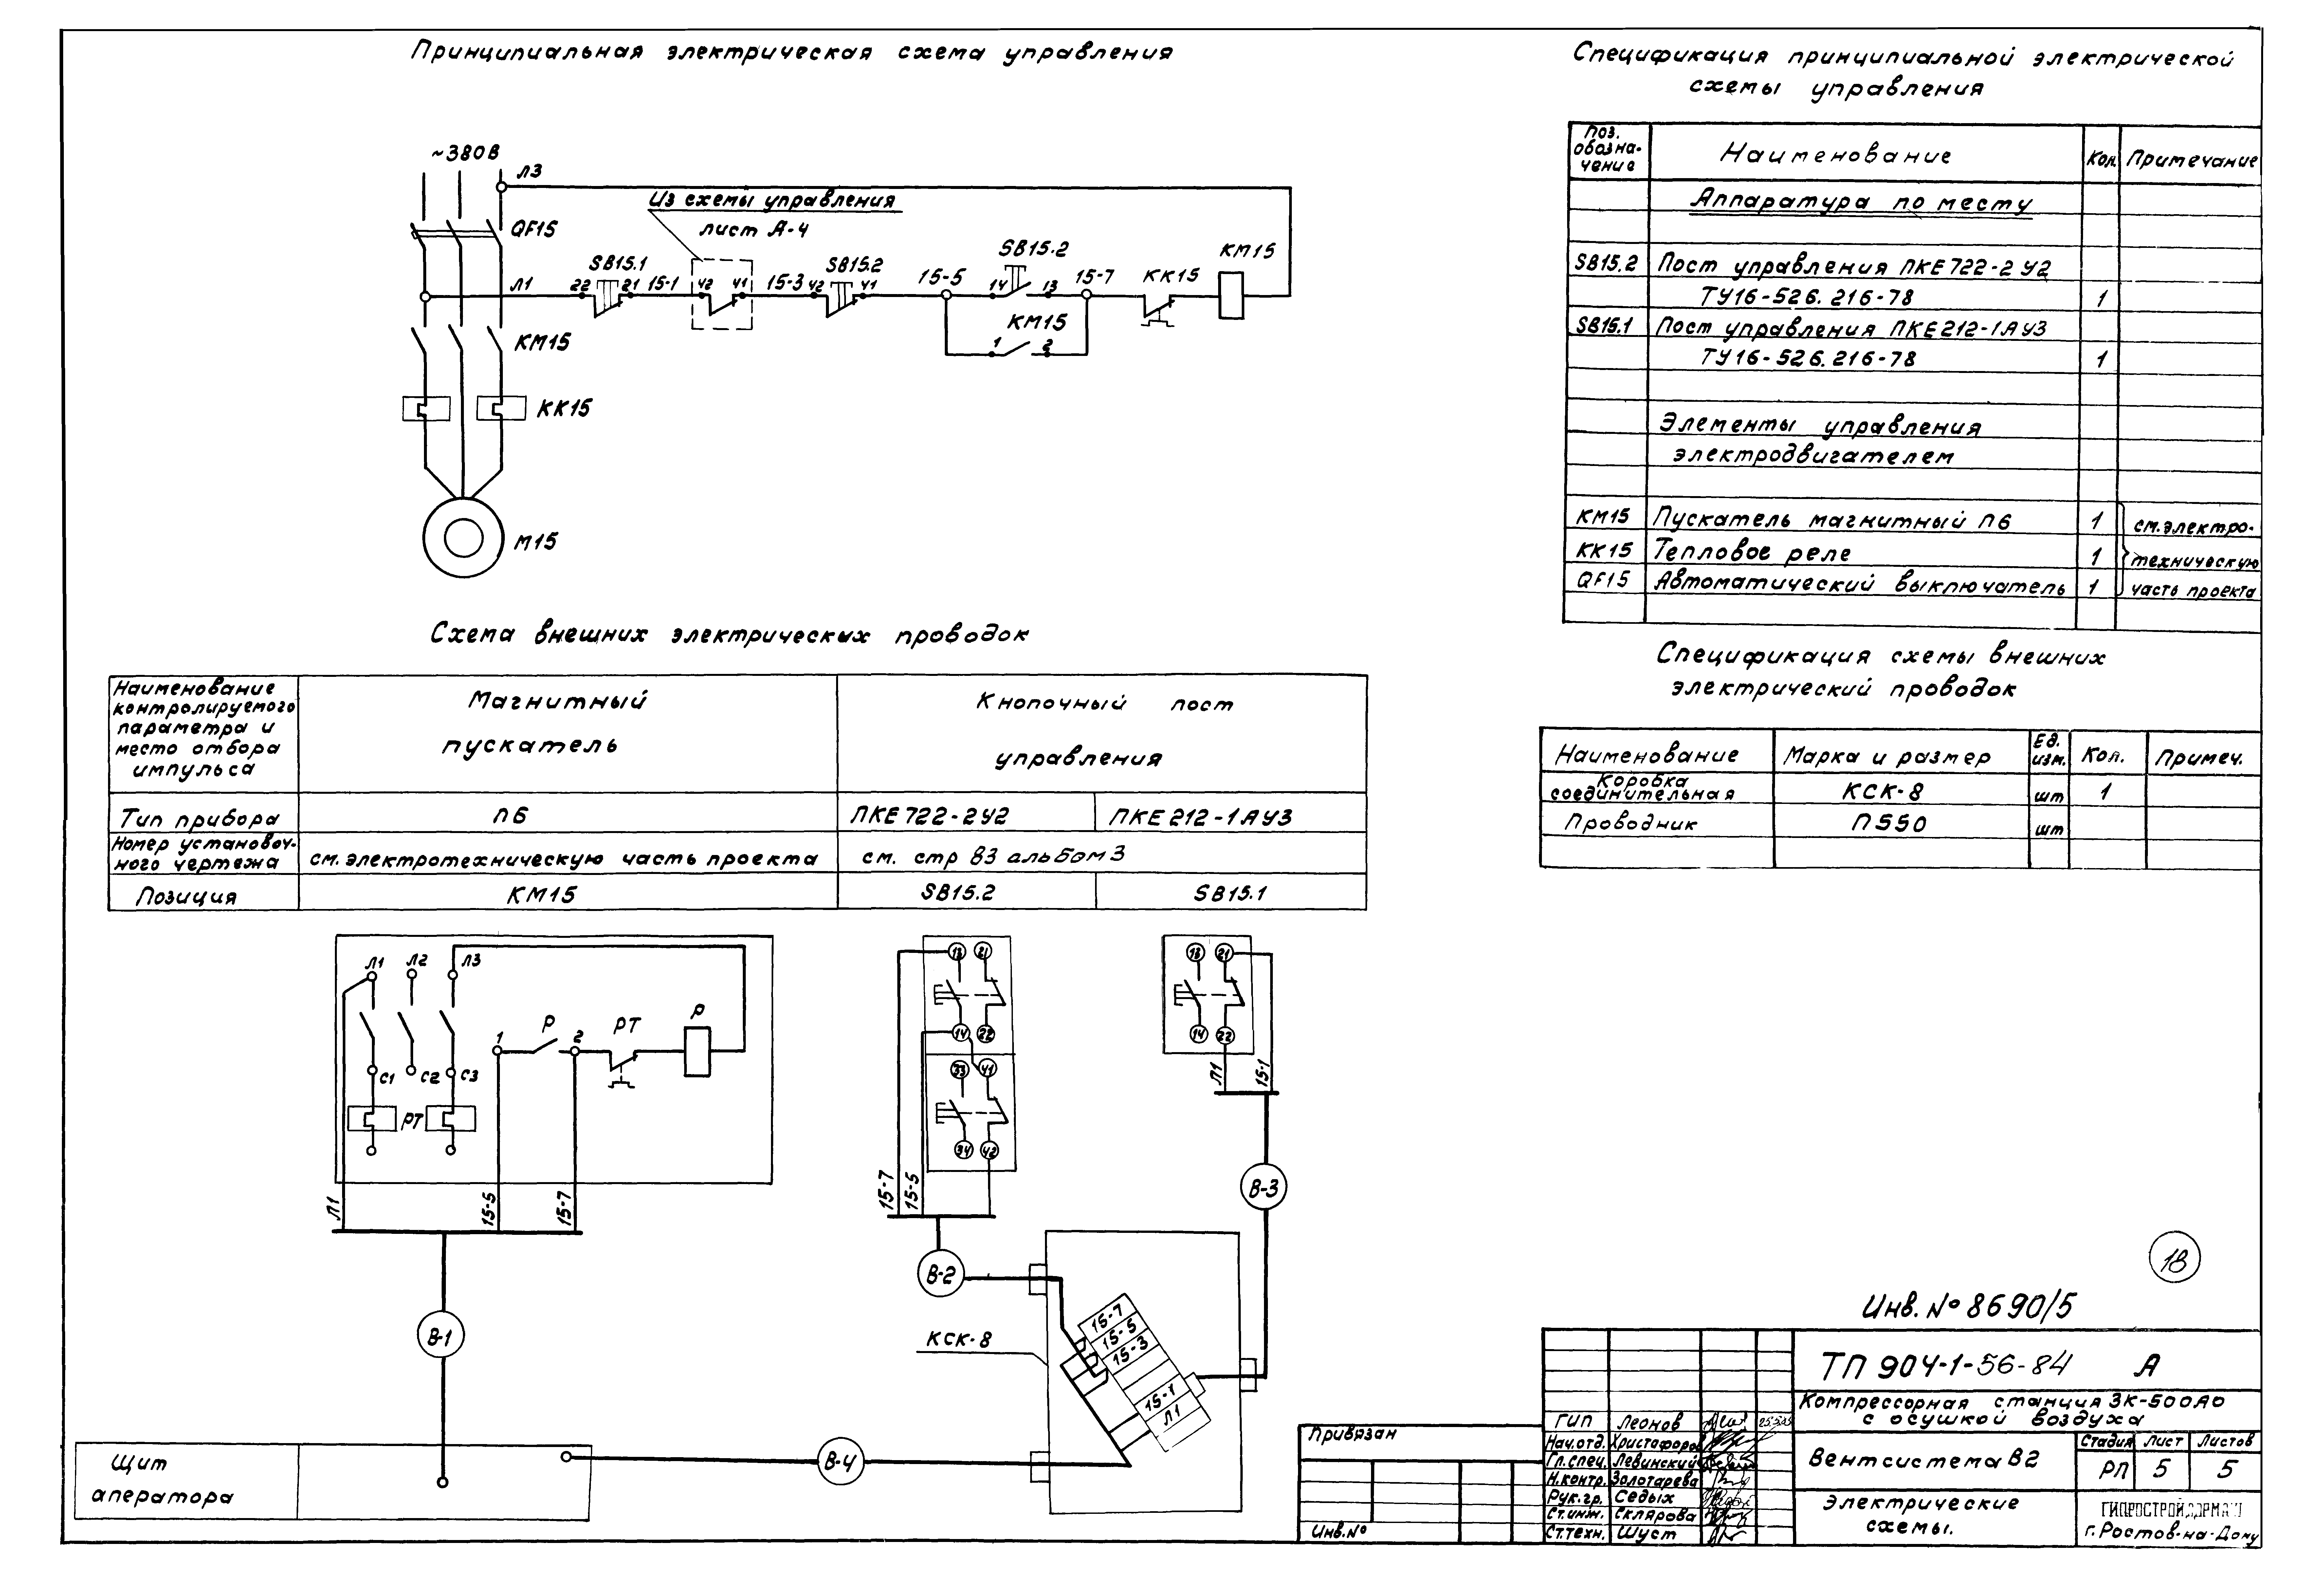 Принципиальная электрическая схема управления
~380В
Л3
QF15
Из схемы управления
лист А-4
Л1
22
SB15.1
21
15-1
42
41
15-3
42
SB15.2
41
15-5
14
SB15.2
13
15-7
КК15
КМ15
КМ15
1
2
КМ15
КК15
М15
Спецификация принципиальной электрической
схемы управления
Поз. обозна-чение
Наименование
Кол.
Примечание
Аппаратура по месту
SB15.2 Пост управления ПКЕ722-2У2
ТУ16-526.216-78 1
SB15.1 Пост управления ПКЕ212-1АУ3
ТУ16-526.216-78 1
Элементы управления
электродвигателем
КМ15 Пускатель магнитный П6 1 см. электро-
КК15 Тепловое реле 1 техническую
QF15 Автоматический выключатель 1 часть проекта
Схема внешних электрических проводок
Наименование
контролируемого
параметра и
место отбора
импульса
Магнитный
пускатель
Кнопочный пост
управления
Тип прибора П6 ПКЕ722-2У2 ПКЕ212-1АУ3
Номер установоч-
ного чертежа
см. электротехническую часть проекта
см. стр 83 альбом 3
Позиция КМ15 SB15.2 SB15.1
Спецификация схемы внешних
электрический проводок
Наименование Марка и размер Ед. изм. Кол. Примеч.
Коробка
соединительная КСК-8 шт 1
Проводник П550 шт
Л1
Л2
Л3
1
Р
2
РТ
Р
С1
С2
С3
РТ
Л1
15-5
15-7
В-1
13
21
14
22
33
41
34
42
15-7
15-5
В-2
13
21
14
22
Л1
15-1
В-3
КСК-8
15-7
15-5
15-3
15-1
Л1
В-4
Щит
аператора
18
Инв. № 8690/5
ТП 904-1-56-84 А
Компрессорная станция 3К-500А0
с осушкой воздуха
Вентсистема В2
Стадия Лист Листов
РП 5 5
Электрические
схемы.
г. Ростов-на-Дону
Привязан
Инв. №
ГИП Леонов
Нач.отд. Христафоров
Гл.спец. Левинский
Н.контр. Золотарева
Рук.гр. Седых
Ст.инж. Склярова
Ст.техн. Шуст